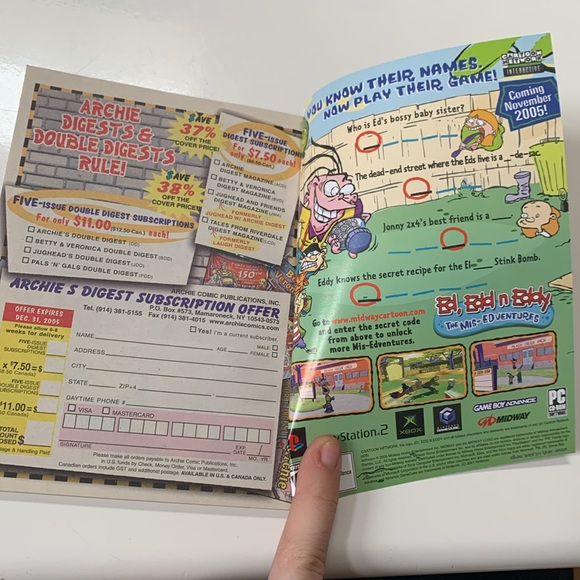 ARCHIE
DIGESTS &
DOUBLE DIGESTS
RULE!
SAVE
37%
OFF THE
COVER PRICE!
SAVE
38%
OFF THE
COVER PRICE!
FIVE-ISSUE
DIGEST SUBSCRIPTIONS
For only $7.50 each!
ARCHIE
DIGEST MAGAZINE
BETTY & VERONICA
DIGEST MAGAZINE
JUGHEAD AND FRIENDS
DIGEST MAGAZINE
FORMERLY
JUGHEAD W/ ARCHIE DIGEST
TALES FROM RIVERDALE
DIGEST MAGAZINE
FORMERLY
LAUGH DIGEST
FIVE-ISSUE DOUBLE DIGEST SUBSCRIPTIONS
For only $11.00 ($12.50-Can.) each!
ARCHIE'S DOUBLE DIGEST
BETTY & VERONICA DOUBLE DIGEST
JUGHEAD'S DOUBLE DIGEST (JDD)
PALS 'N' GALS DOUBLE DIGEST
150
ARCHIE'S DIGEST SUBSCRIPTION OFFER
ARCHIE COMIC PUBLICATIONS, INC.
Tel. (914) 381-5155 P.O. Box #573, Mamaroneck, NY 10543-0573
Fax (914) 381-4015 www.archiecomics.com
Yes! I'm a current subscriber.
NAME AGE MALE
FEMALE
ADDRESS
CITY
STATE ZIP+4
DAYTIME PHONE #
VISA MASTERCARD
SIGNATURE EXP. DATE MO. YR.
Please make all orders payable to Archie Comic Publications, Inc.
in U.S. funds by Check, Money Order, Visa or Mastercard.
Canadian orders include GST and additional postage. AVAILABLE IN U.S. & CANADA ONLY.
OFFER EXPIRES
DEC. 31, 2005
Please allow 6-8
weeks for delivery
FIVE-ISSUE
DIGEST
SUBSCRIPTIONS
x $7.50 = $
FIVE-ISSUE
DOUBLE DIGEST
SUBSCRIPTIONS
$11.00 = $
& Handling Paid
YOU KNOW THEIR NAMES.
NOW PLAY THEIR GAME!
CARTOON NETWORK
INTERACTIVE
Coming
November
2005!
Who is Ed's bossy baby sister?
The dead-end street where the Eds live is a -de-sac
Jonny 2x4's best friend is a
Eddy knows the secret recipe for the El- Stink Bomb.
Go to www.midwaycartoon.com
and enter the secret code
from above to unlock
more Mis-Edventures.
Ed, Edd n Eddy
THE MIS-EDVENTURES
PlayStation.2
XBOX
GAMECUBE
GAME BOY ADVANCE
MIDWAY
PC
CD-ROM